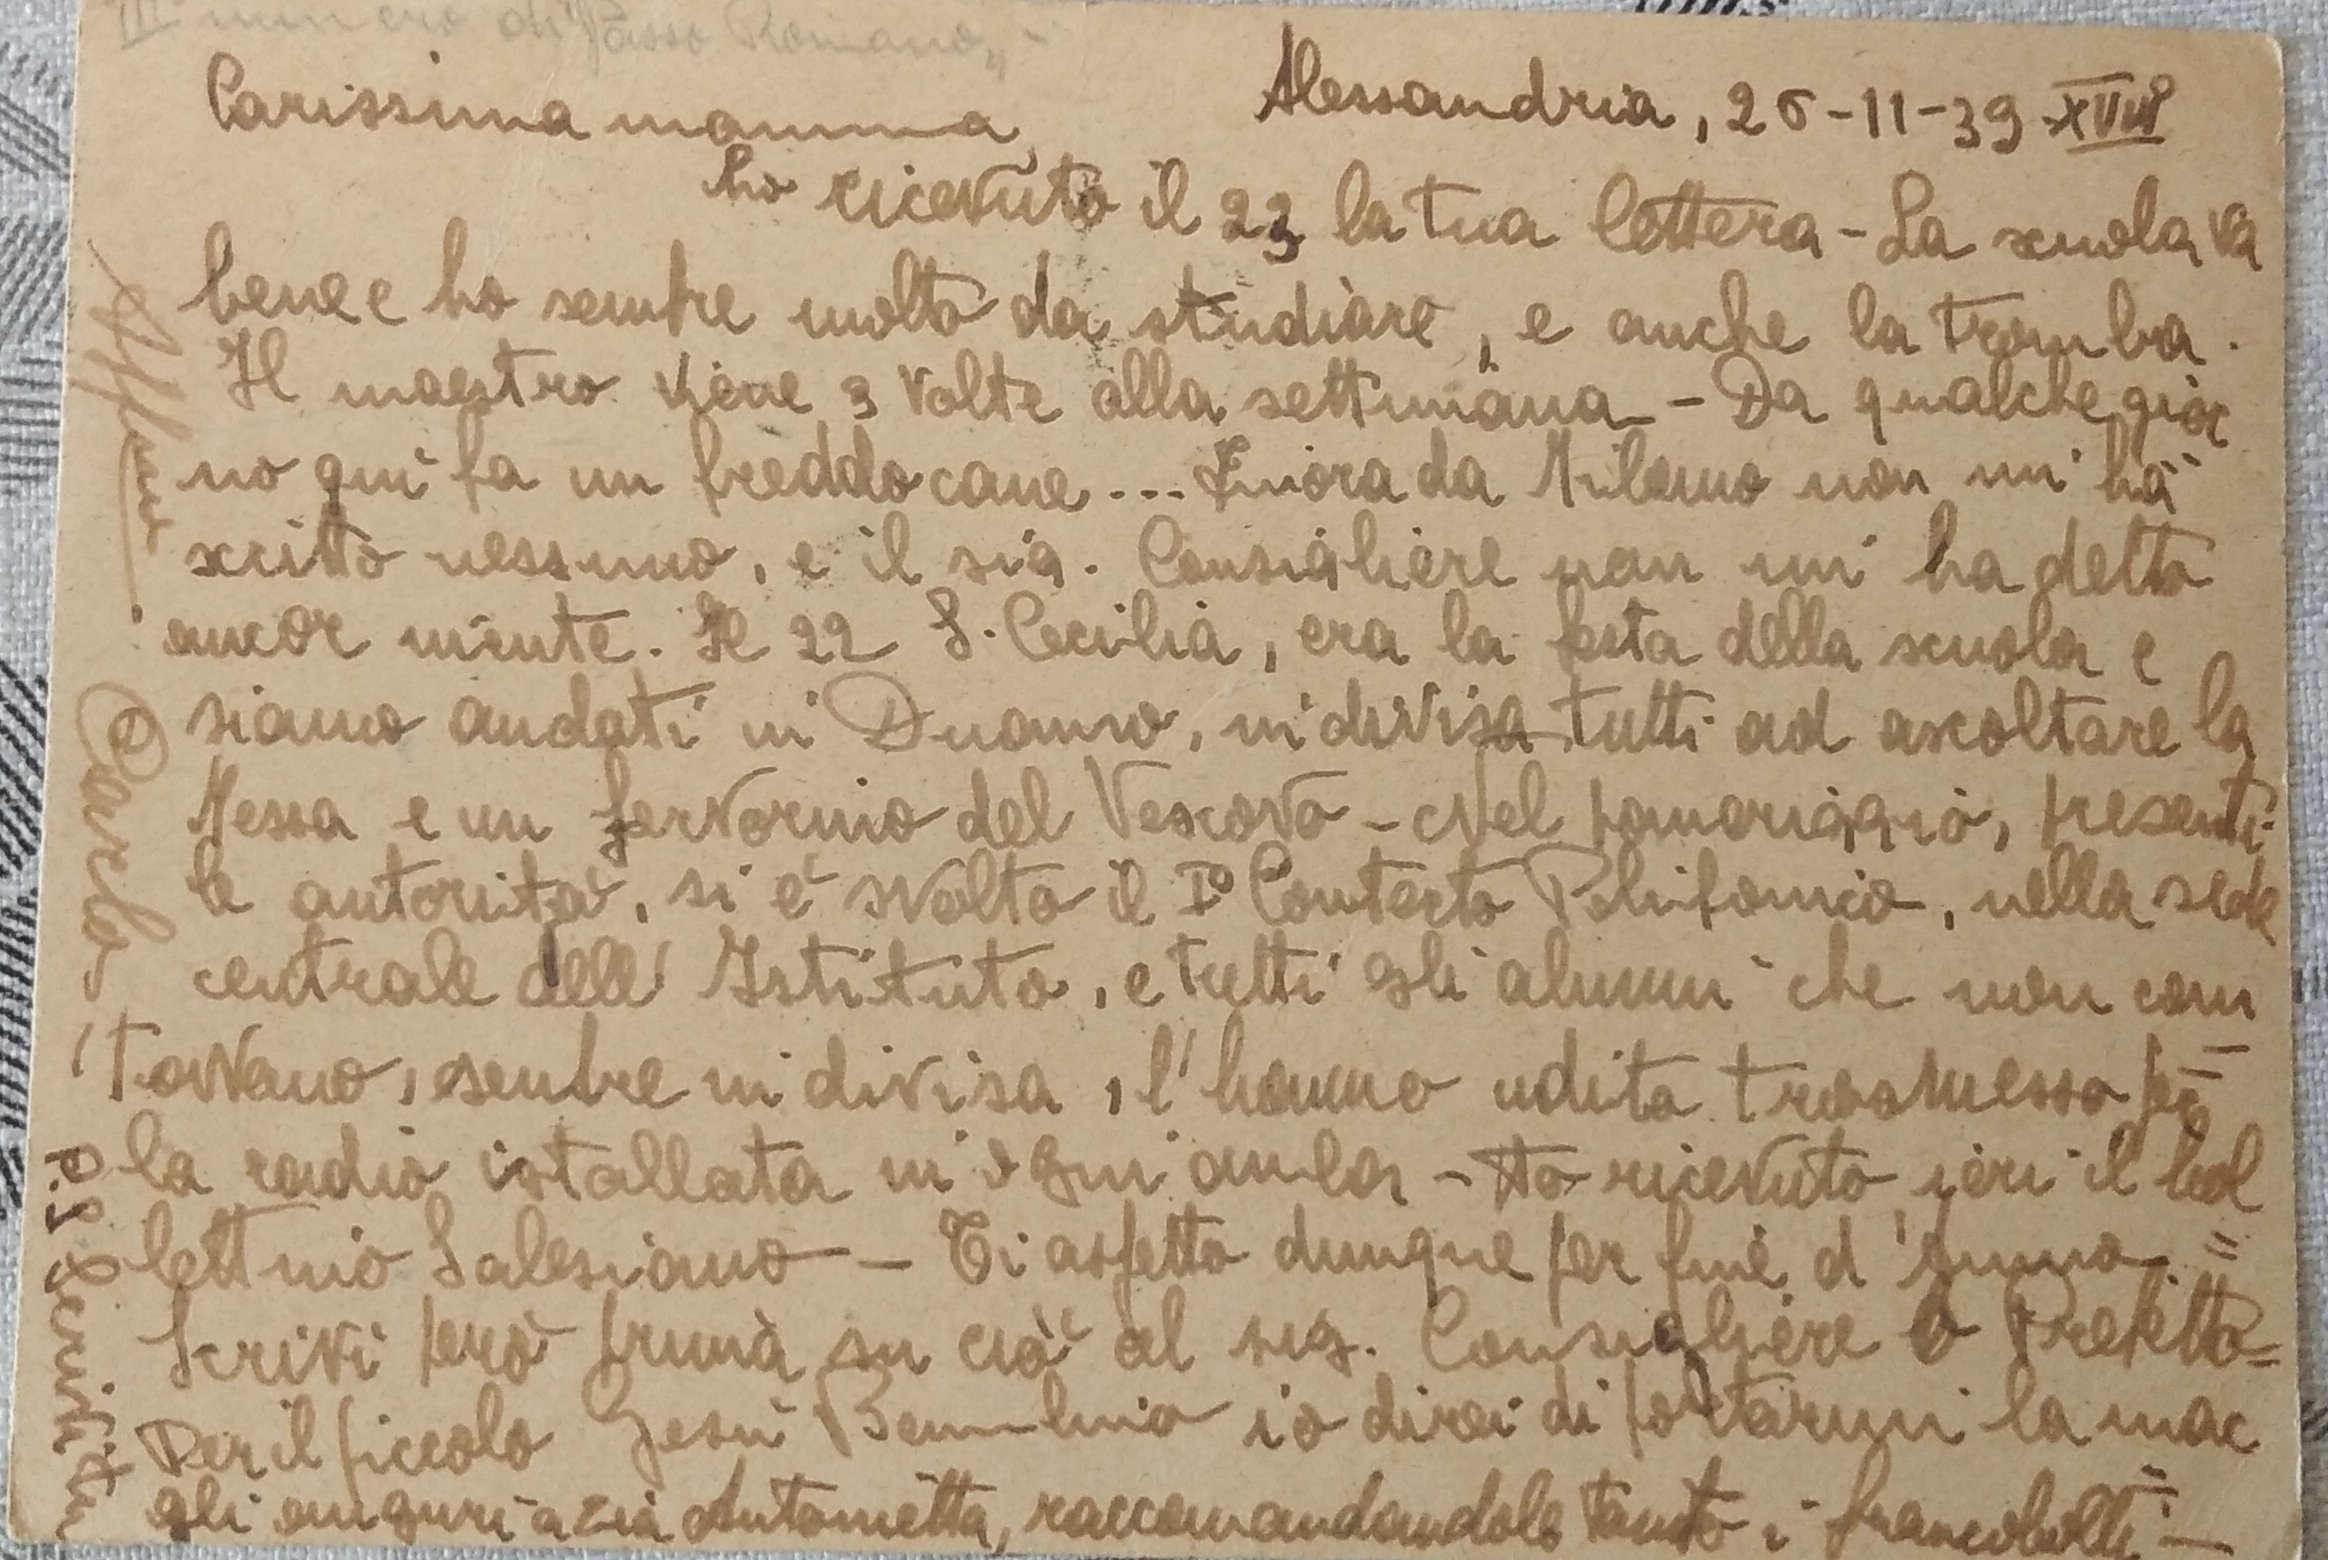 III numero di "Passo Romano" -
Alessandria, 26-11-39 XVIIIº
Carissima mamma,
ho ricevuto il 23 la tua lettera - La scuola va
bene e ho sempre molto da studiare, e anche la tromba.
Il maestro viene 3 volte alla settimana - Da qualche gior
no qui fa un freddo cane... Finora da Milano non mi ha
scritto nessuno, e il sig. Consigliere non mi ha detto
ancor niente. Il 22 S. Cecilia, era la festa della scuola e
siamo andati in Duomo, in divisa tutti ad ascoltare la
Messa e un fervorino del Vescovo - Nel pomeriggio, presenti
le autorità, si è svolto il Iº Contecto Polifonico, nella sede
centrale dell' Istituto, e tutti gli alunni che non can
tavano, sempre in divisa, l'hanno udito trasmesso per
la radio istallata in ogni aula - Ho ricevuto ieri il bol
lettino Salesiano - Ti aspetto dunque per fine d'Anno. =
Scrivi però prima su ciò al sig. Consigliere o Prefetto =
Per il piccolo Gesù Bambino io direi di portarmi la mac
gli auguri a zia Antonietta, raccomandandole tanto i francobolli -
Carlo -
P.S.